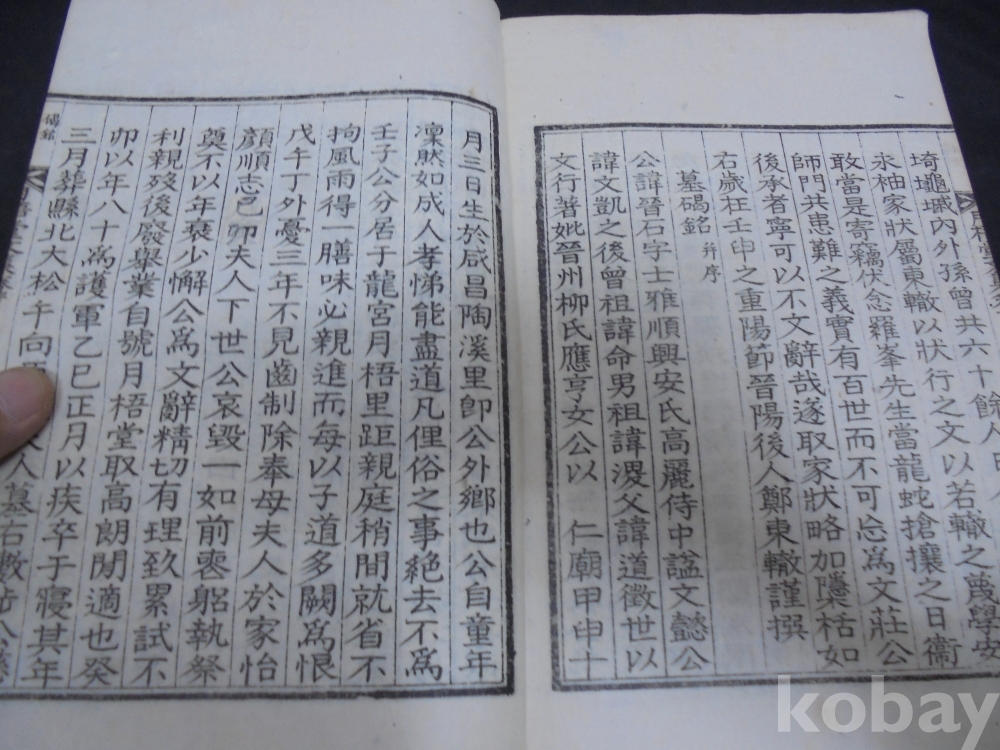 埼墭墄內外孫曾共六十餘人
永柚家狀屬東轍以狀行之文以若轍之蔑學安
敢當是寄竊伏念羅峯先生當龍蛇搶攘之日衞
師門共患難之義實有百世而不可忘爲文莊公
後承者寧可以不文辭哉遂取家狀略加櫽栝如
右歲在壬申之重陽節晉陽後人鄭東轍謹撰
墓碣銘 幷序
公諱晉石字士雅順興安氏高麗侍中謚文懿公
諱文凱之後曾祖諱命男祖諱溭父諱道徵世以
文行著妣晉州柳氏應亨女公以 仁廟甲申十
月三日生於咸昌陶溪里卽公外鄉也公自童年
凜然如成人孝悌能盡道凡俚俗之事絶去不爲
壬子公分居于龍宮月梧里距親庭稍間就省不
拘風雨得一膳味必親進而每以子道多闕爲恨
戊午丁外憂三年不見齒制除奉母夫人於家怡
顏順志己卯夫人下世公哀毀一如前喪躬執祭
奠不以年衰少懈公爲文辭精切有理致累試不
利親歿後廢擧業自號月梧堂取高朗閒適也癸
卯以年八十爲護軍乙巳正月以疾卒于寢其年
三月葬縣北大松午向
人墓右數步公
碣銘